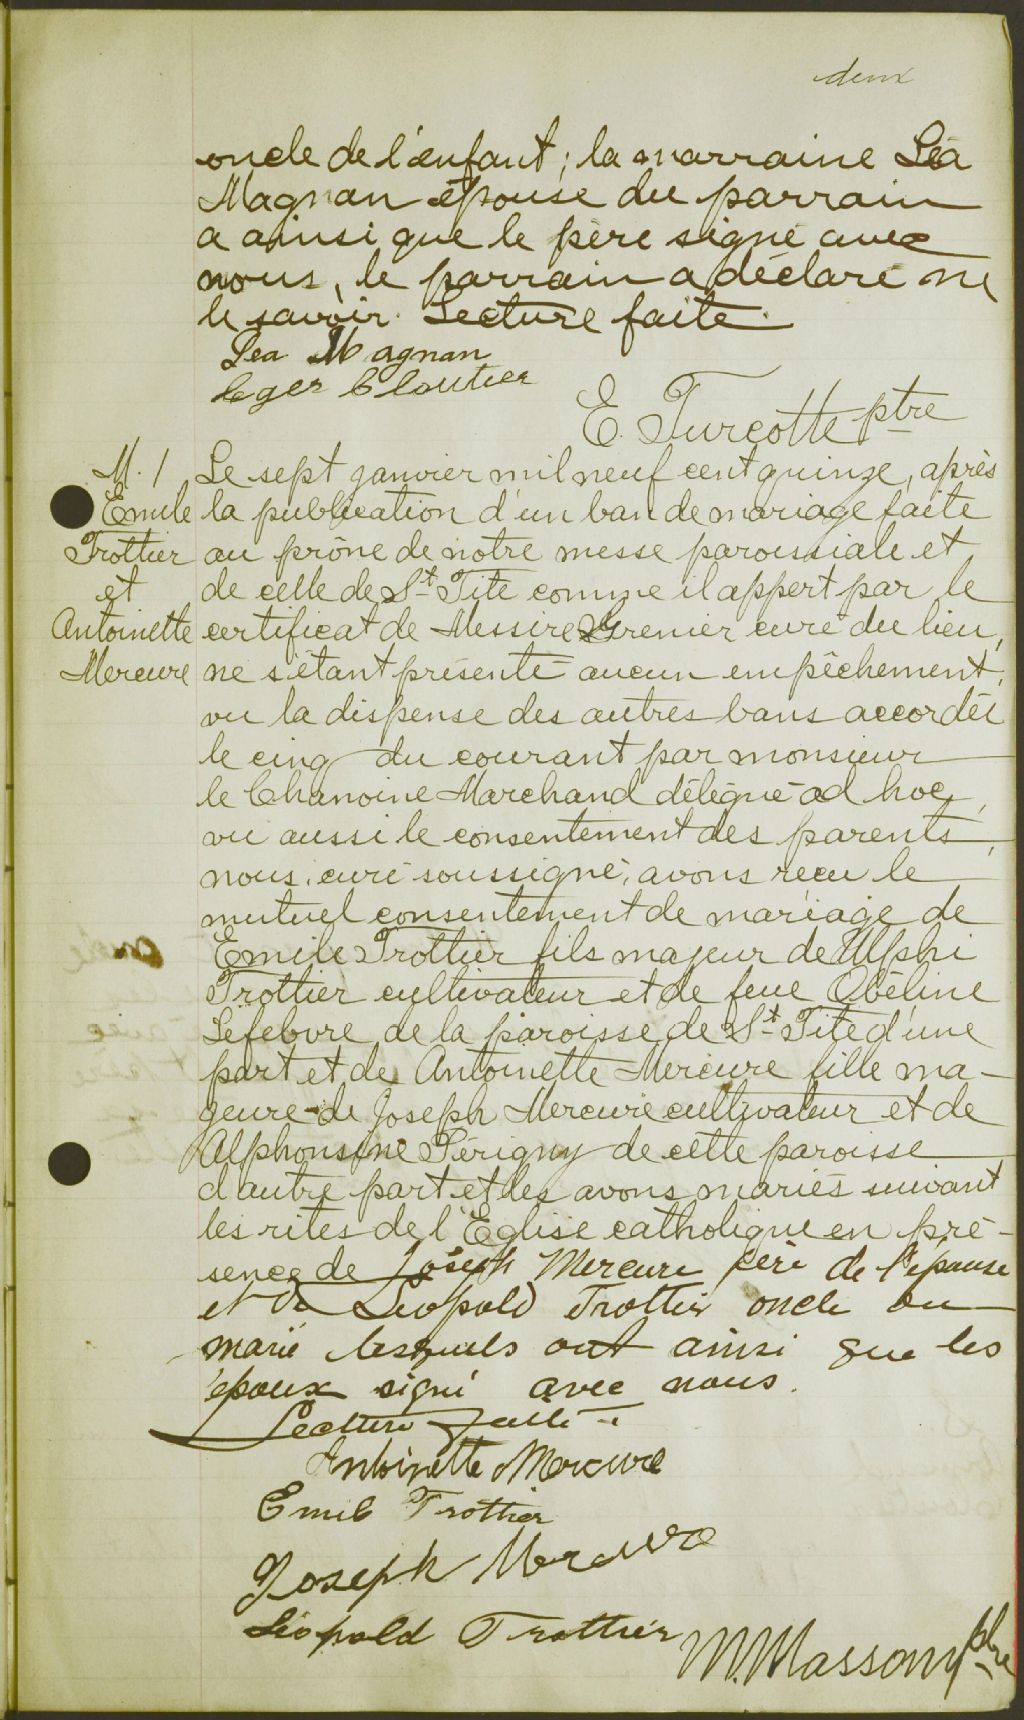 deux
oncle de l'enfant; la marraine Léa
Magnan épouse du parrain
a ainsi que le père signé avec
nous, le parrain a déclaré ne
le savoir. Lecture faite.
Lea Magnan
Leger Cloutier
E. Turcotte ptre
M. 1
Emile
Trottier
et
Antoinette
Mercure
Le sept janvier mil neuf cent quinze, après
la publication d'un ban de mariage faite
au prône de notre messe paroissiale et
de celle de St Tite comme il appert par le
certificat de Messire Grenier curé du lieu,
ne s'étant présenté aucun empêchement,
vu la dispense des autres bans accordée
le cinq du courant par monsieur
le Chanoine Marchand délégué ad hoc,
vu aussi le consentement des parents,
nous, curé soussigné, avons reçu le
mutuel consentement de mariage de
Emile Trottier fils majeur de Ulphi
Trottier cultivateur et de feue Obéline
Lefebvre de la paroisse de St Tite d'une
part et de Antoinette Mercure fille ma-
jeure de Joseph Mercure cultivateur et de
Alphonsine Périgny de cette paroisse
d'autre part et les avons mariés suivant
les rites de l'Eglise catholique en pré-
sence de Joseph Mercure père de l'épouse
et de Léopold Trottier oncle du
marié lesquels ont ainsi que les
époux signé avec nous.
Lecture faite.
Antoinette Mercure
Emile Trottier
Joseph Mercure
Léopold Trottier
M. Masson ptre